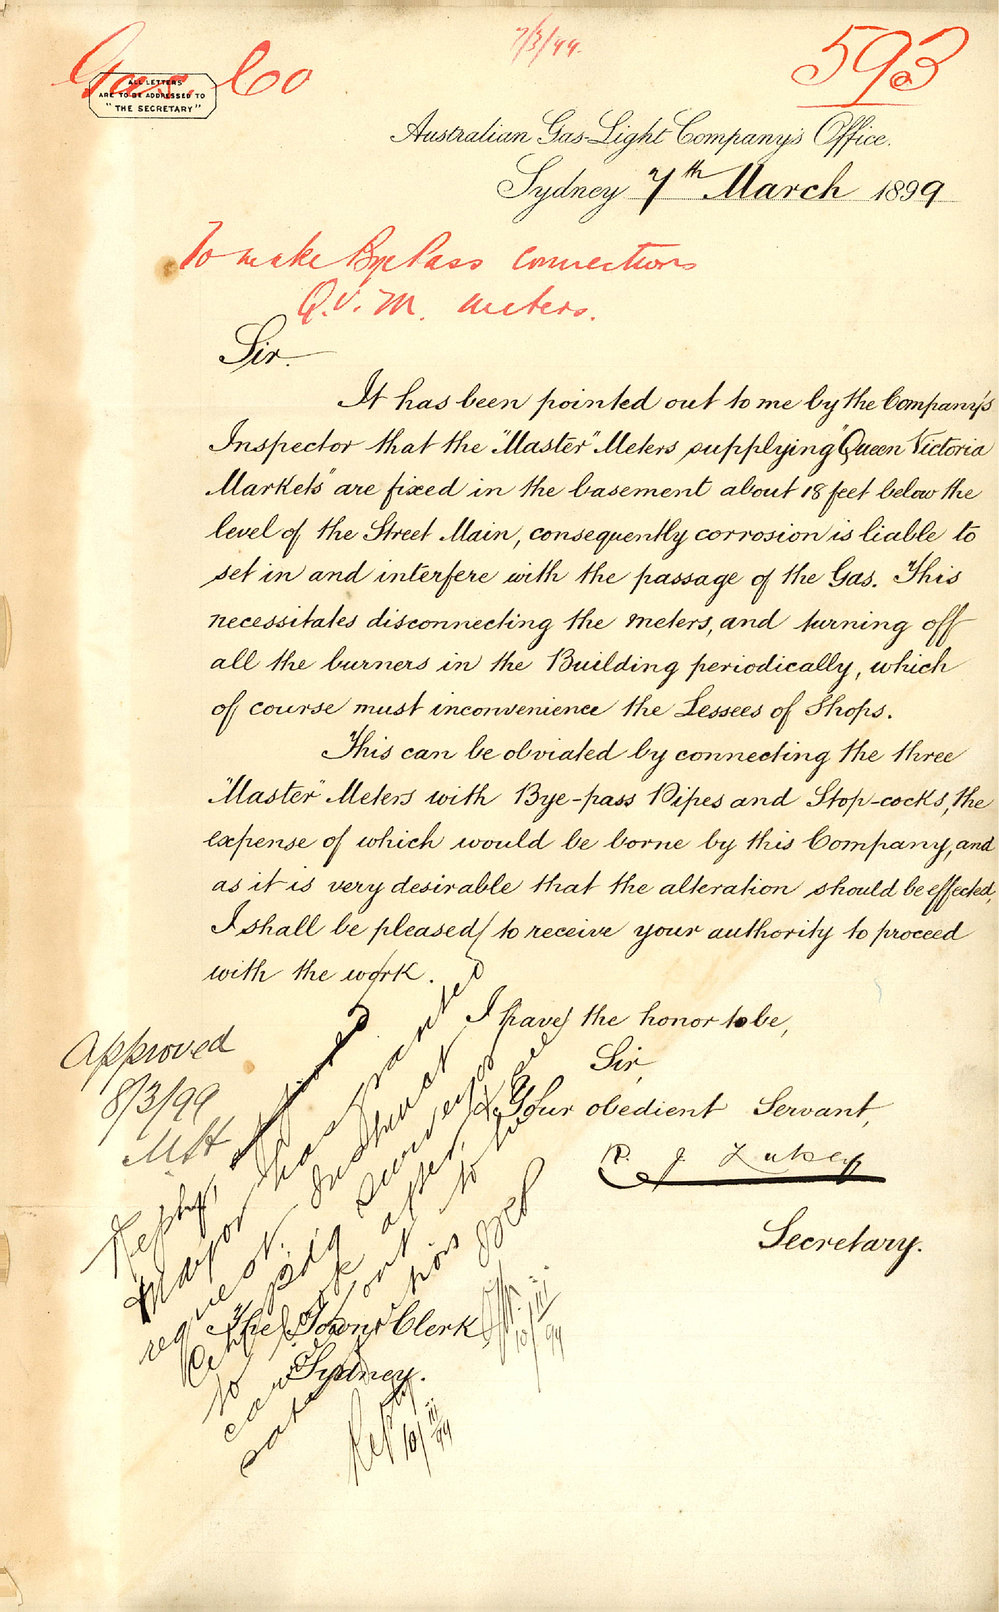 7/3/99.
Gas. Co
593
ALL LETTERS
ARE TO BE ADDRESSED TO
"THE SECRETARY"
Australian Gas-Light Company's Office.
Sydney 7th March 1899
To make Bye Pass connections
Q.V.M. meters.
Sir.
It has been pointed out to me by the Company's
Inspector that the "Master" Meters supplying "Queen Victoria
Markets" are fixed in the basement about 18 feet below the
level of the Street Main, consequently corrosion is liable to
set in and interfere with the passage of the Gas. This
necessitates disconnecting the meters, and turning off
all the burners in the Building periodically, which
of course must inconvenience the Lessees of Shops.
This can be obviated by connecting the three
"Master" Meters with Bye-pass Pipes and Stop-cocks, the
expense of which would be borne by this Company, and
as it is very desirable that the alteration should be effected,
I shall be pleased to receive your authority to proceed
with the work.
I have the honor to be,
Sir,
Your obedient Servant,
Secretary.
The Town Clerk
Sydney.
Approved
8/3/99
MH
Reply,
Mayor has granted
request. Instruct
City Bldg Surveyor
to look after, & see
carried out to his
satisfaction
10/iii/99
Reply
10/iii/99